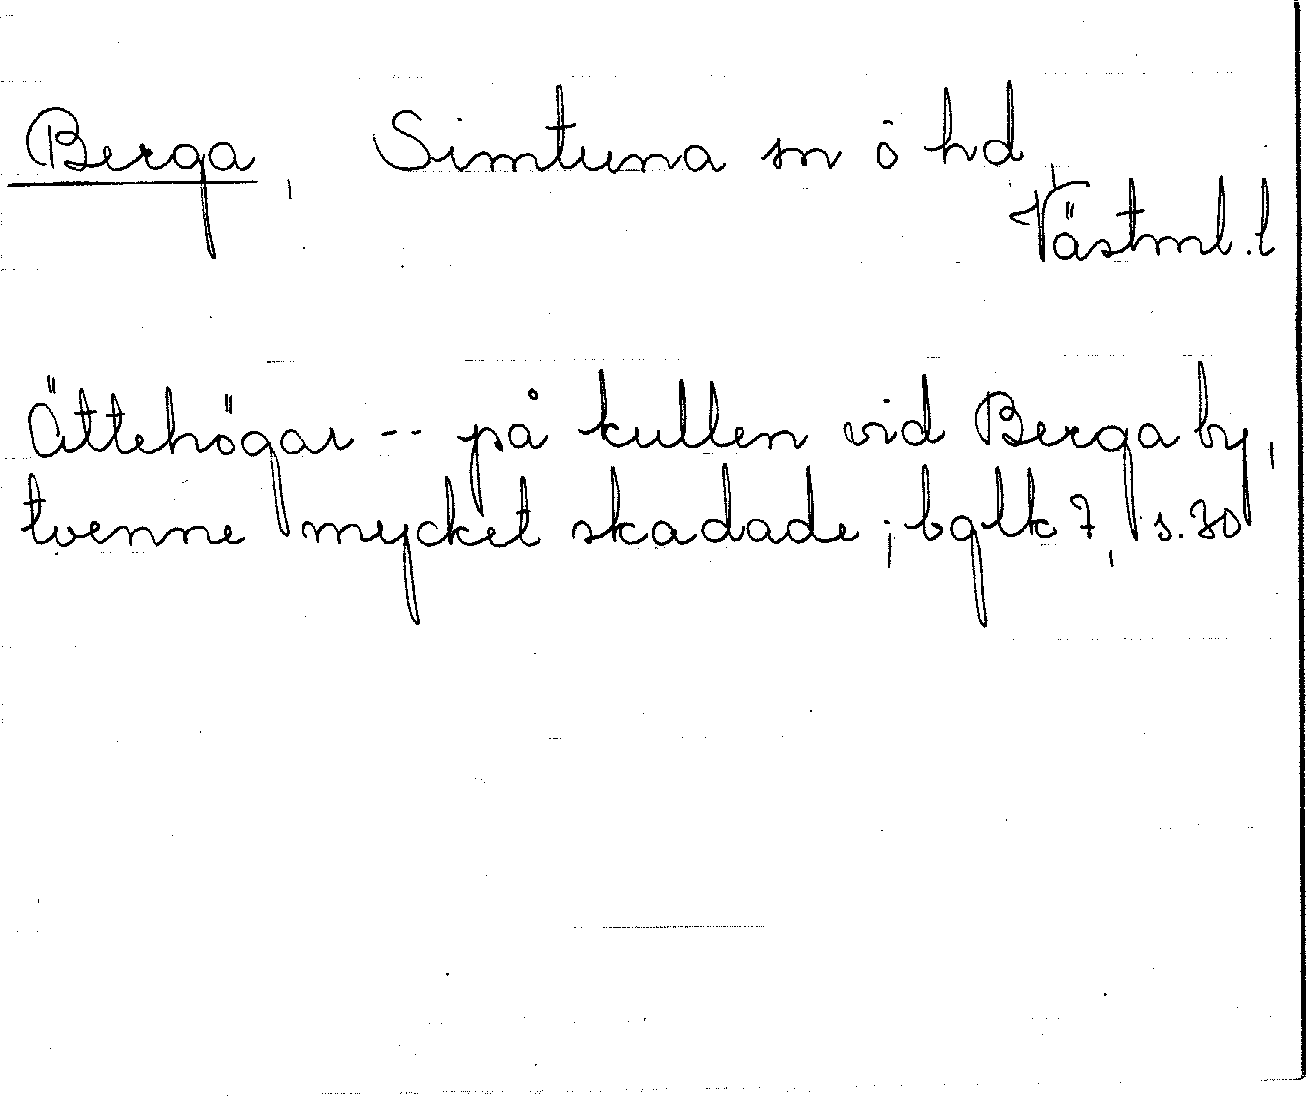 Berga, Simtuna sn ö hd,
Västml. l
Ättehögar -- på kullen vid Berga by,
tvenne mycket skadade; bglk 7, s. 30